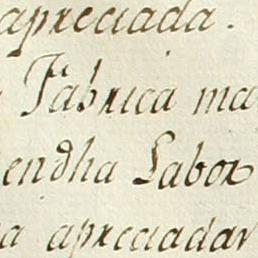 apreciada.
Fabrica ma
endha Labor
a apreciadar